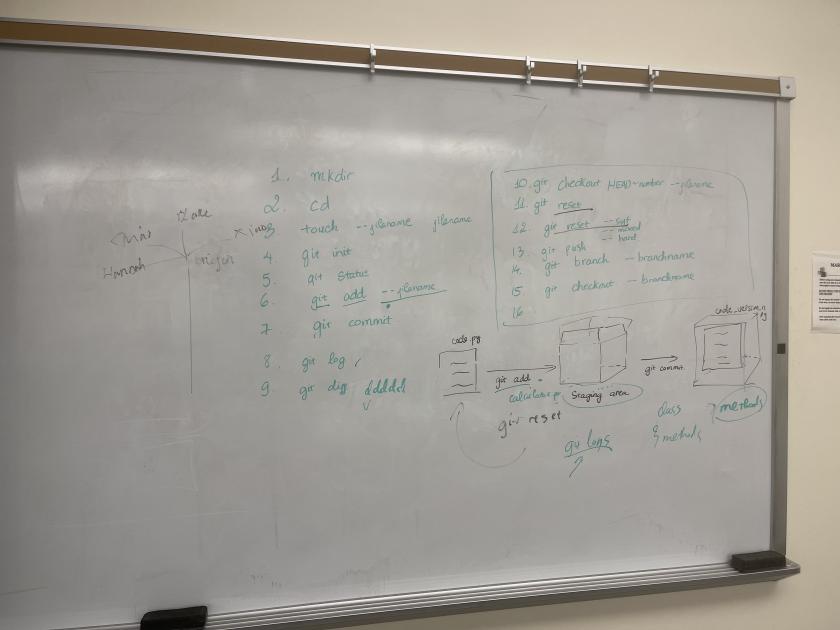 1. mkdir
2. cd
3 touch --filename filename
4. git init
5. git status
6. git add --filename
7. git commit
8. git log
9. git diff ddddd
10. git checkout HEAD~number --filename
11. git reset
12. git reset --soft
-- mixed
-- hard
13. git push
14. git branch --branchname
15. git checkout - branchname
16.
Hannah
origin
code.py
git add
Staging area
git commit
git reset
git logs
class
methods
methods